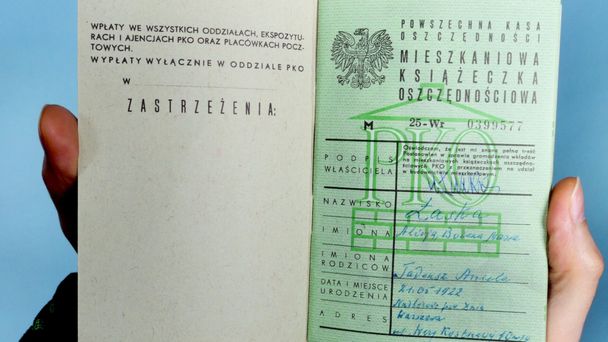 WPŁATY WE WSZYSTKICH ODDZIAŁACH, EKSPOZYTU-
RACH I AJENCJACH PKO ORAZ PLACÓWKACH POCZ-
TOWYCH.
WYPŁATY WYŁĄCZNIE W ODDZIALE PKO
W
ZASTRZEŻENIA:
POWSZECHNA KASA
OSZCZĘDNOŚCI
MIESZKANIOWA
KSIĄŻECZKA
OSZCZĘDNOŚCIOWA
PKO
M 25-Wr 0399577
Oświadczam, że jest mi znana pełna treść
Postanowień w sprawie gromadzenia wkładów
na mieszkaniowych książeczkach oszczędno-
ściowych PKO z przeznaczeniem na udział
w budownictwie mieszkaniowym.
PODPIS
WŁAŚCICIELA
NAZWISKO Łaska
IMIONA Alicja Bożena
IMIONA
RODZICÓW Tadeusz Aniela
DATA I MIEJSCE 21.05.1922
URODZENIA
ADRES Warszawa